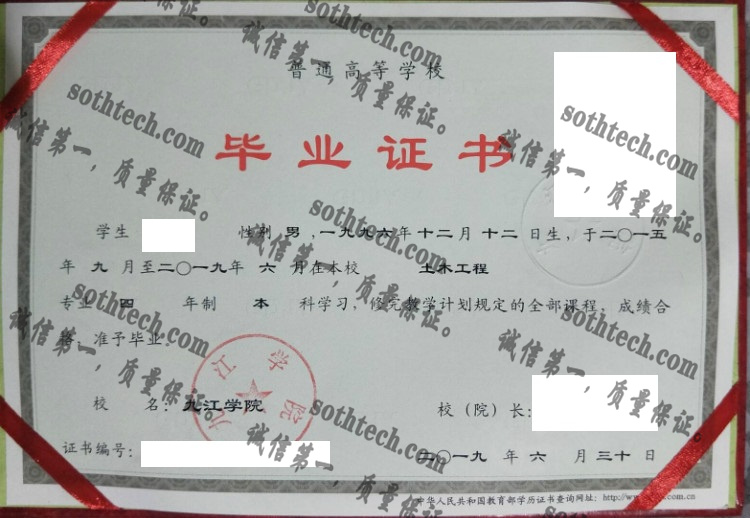 普通高等学校
毕业证书
学生 性别 男 ,一九九六年十二月十二日生，于二〇一五
年 九 月至二〇一九年 六 月在本校 土木工程
专业 四 年制 本 科学习，修完教学计划规定的全部课程，成绩合
格，准予毕业。
九江学院
校 名：九江学院 校（院）长：
证书编号： 二〇一九 年 六 月 三十 日
中华人民共和国教育部学历证书查询网址：http://www. .com.cn
sothtech.com
诚信第一，质量保证。
sothtech.com
诚信第一，质量保证。
sothtech.com
诚信第一，质量保证。
sothtech.com
诚信第一，质量保证。
sothtech.com
诚信第一，质量保证。
sothtech.com
诚信第一，质量保证。
sothtech.com
诚信第一，质量保证。